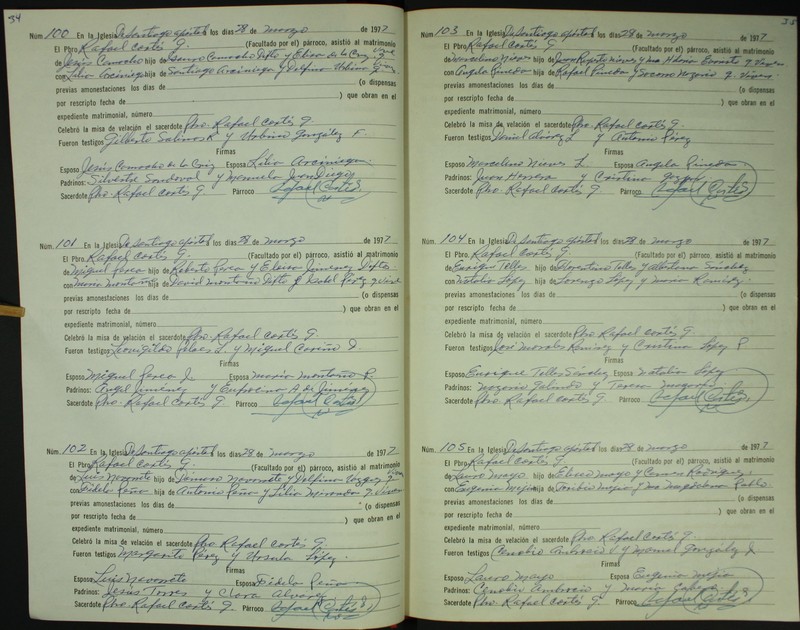 34
Núm. 100 En la Iglesia De Santiago Apóstol los días 28 de marzo de 1977
El Pbro. Rafael Cortés G. (Facultado por el) párroco, asistió al matrimonio
de Jesús Camacho hijo de Camacho Dfto y Elisa de la Cruz
con Lilia Arciniega hija de Santiago Arciniega y Delfina
previas amonestaciones los días de (o dispensas
por rescripto fecha de ) que obran en el
expediente matrimonial, número
Celebró la misa de velación el sacerdote Pbo. Rafael Cortés G.
Fueron testigos Gilberto y González F.
Firmas
Esposo Jesús Camacho de la Cruz Esposa Lilia Arciniega
Padrinos: Silvestre Sandoval y Manuela
Sacerdote Pbo. Rafael Cortés G Párroco Rafael Cortés
Núm. 101 En la Iglesia De Santiago Apóstol los días 28 de marzo de 1977
El Pbro. Rafael Cortés G. (Facultado por el) párroco, asistió al matrimonio
de Miguel Perea hijo de Roberto Perea y Elena Jiménez Dftos.
con María Montaño hija de David Montaño Dfto y Isabel Pérez q vive
previas amonestaciones los días de (o dispensas
por rescripto fecha de ) que obran en el
expediente matrimonial, número
Celebró la misa de velación el sacerdote Pbo. Rafael Cortés G.
Fueron testigos L. y Miguel J.
Firmas
Esposo Miguel Perea J. Esposa María Montaño P.
Padrinos: Angel Jiménez y A. de Jiménez
Sacerdote Pbo. Rafael Cortés G. Párroco Rafael Cortés
Núm. 102 En la Iglesia De Santiago Apóstol los días 28 de marzo de 1977
El Pbro. Rafael Cortés G. (Facultado por el) párroco, asistió al matrimonio
de Luis Navarrete hijo de Navarrete y Delfina Vázquez
con Fidela Peña hija de Antonio Peña y Lilia Miranda q. viven
previas amonestaciones los días de (o dispensas
por rescripto fecha de ) que obran en el
expediente matrimonial, número
Celebró la misa de velación el sacerdote Pbo. Rafael Cortés G.
Fueron testigos Margarita Pérez y Ursula López.
Firmas
Esposo Luis Navarrete Esposa Fidela Peña
Padrinos: Jesús Torres y Clara Alvarez
Sacerdote Pbo. Rafael Cortés G. Párroco Rafael Cortés G
35
Núm. 103 En la Iglesia De Santiago Apóstol los días 28 de marzo de 1977
El Pbro. Rafael Cortés G. (Facultado por el) párroco, asistió al matrimonio
de Marcelino Nieves hijo de Juan Nieves y Ma q. viven
con Angela Pineda hija de Rafael Pineda y Socorro q. viven
previas amonestaciones los días de (o dispensas
por rescripto fecha de ) que obran en el
expediente matrimonial, número
Celebró la misa de velación el sacerdote Pbo. Rafael Cortés G.
Fueron testigos y Antonio Pérez
Firmas
Esposo Marcelino Nieves L. Esposa Angela Pineda
Padrinos: Juan Herrera y Cristina
Sacerdote Pbo. Rafael Cortés G Párroco Rafael Cortés
Núm. 104 En la Iglesia De Santiago Apóstol los días 28 de marzo de 1977
El Pbro. Rafael Cortés G. (Facultado por el) párroco, asistió al matrimonio
de Enrique Tellez hijo de Florentino Tellez y Albertana Sánchez
con Natalia López hija de Lorenzo López y María Ramírez
previas amonestaciones los días de (o dispensas
por rescripto fecha de ) que obran en el
expediente matrimonial, número
Celebró la misa de velación el sacerdote Pbo. Rafael Cortés G.
Fueron testigos José Morales Ramírez y Cristina López P
Firmas
Esposo Enrique Tellez Sánchez Esposa Natalia López
Padrinos: Galindo y Teresa
Sacerdote Pbo Rafael Cortés G. Párroco Rafael Cortés
Núm. 105 En la Iglesia De Santiago Apóstol los días 28 de marzo de 1977
El Pbro. Rafael Cortés G. (Facultado por el) párroco, asistió al matrimonio
de Lauro Mayo hijo de Eliseo Mayo y Rodríguez
con Eugenia Mejía hija de Toribio Mejía y Ma Magdalena Pablo.
previas amonestaciones los días de (o dispensas
por rescripto fecha de ) que obran en el
expediente matrimonial, número
Celebró la misa de velación el sacerdote Pbo Rafael Cortés G.
Fueron testigos Cenobio Ambrocio y Manuel González J.
Firmas
Esposo Lauro Mayo Esposa Eugenia Mejía
Padrinos: Cenobio Ambrocio y María
Sacerdote Pbo. Rafael Cortés G. Párroco Rafael Cortés G